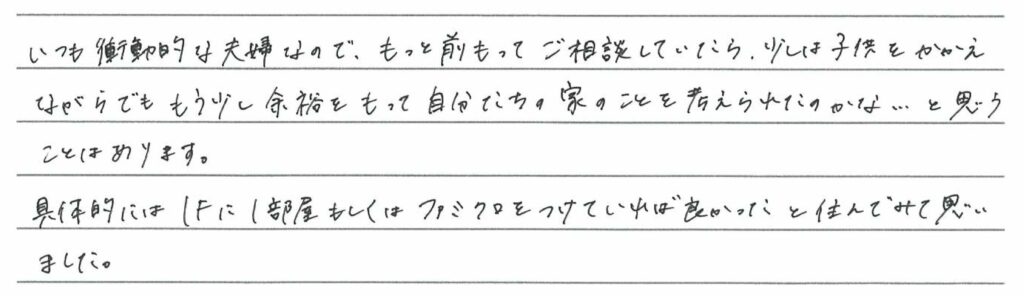 いつも衝動的な夫婦なので、もっと前もってご相談していたら、少しは子供をかかえ
ながらでももう少し余裕をもって自分たちの家のことを考えられたのかな…と思う
ことはあります。
具体的には1Fに1部屋もしくはファミクロをつけていれば良かったと住んでみて思い
ました。